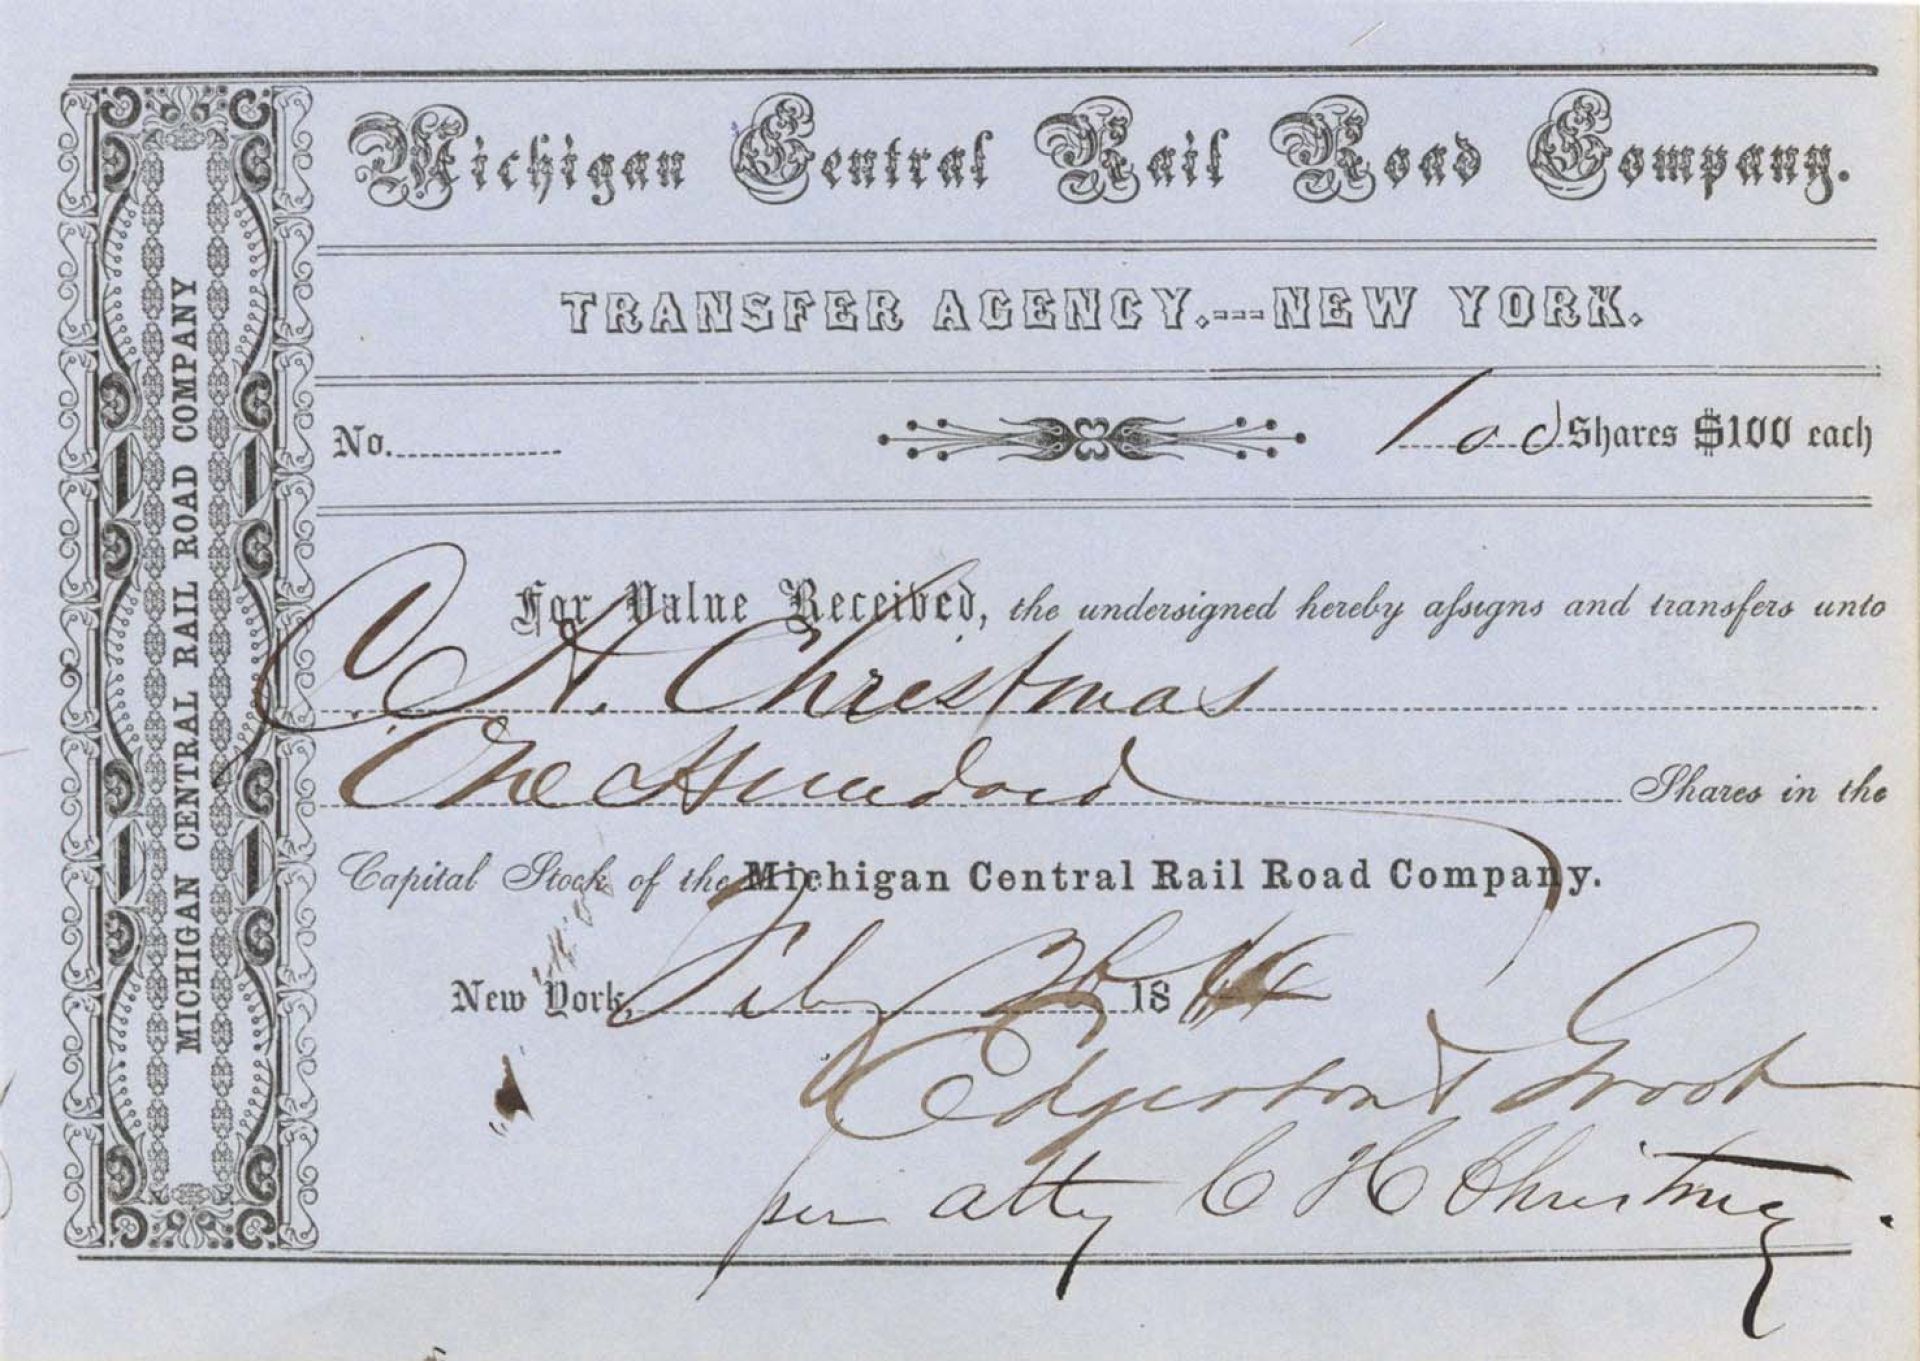 Michigan Central Rail Road Company.
TRANSFER AGENCY.---NEW YORK.
No. 100 Shares $100 each
For Value Received, the undersigned hereby aſsigns and transfers unto
C. H. Christmas
One Hundred Shares in the
Capital Stock of the Michigan Central Rail Road Company.
New York, Feby 18
Edgerton & Groot
per atty C H Christmas
MICHIGAN CENTRAL RAIL ROAD COMPANY